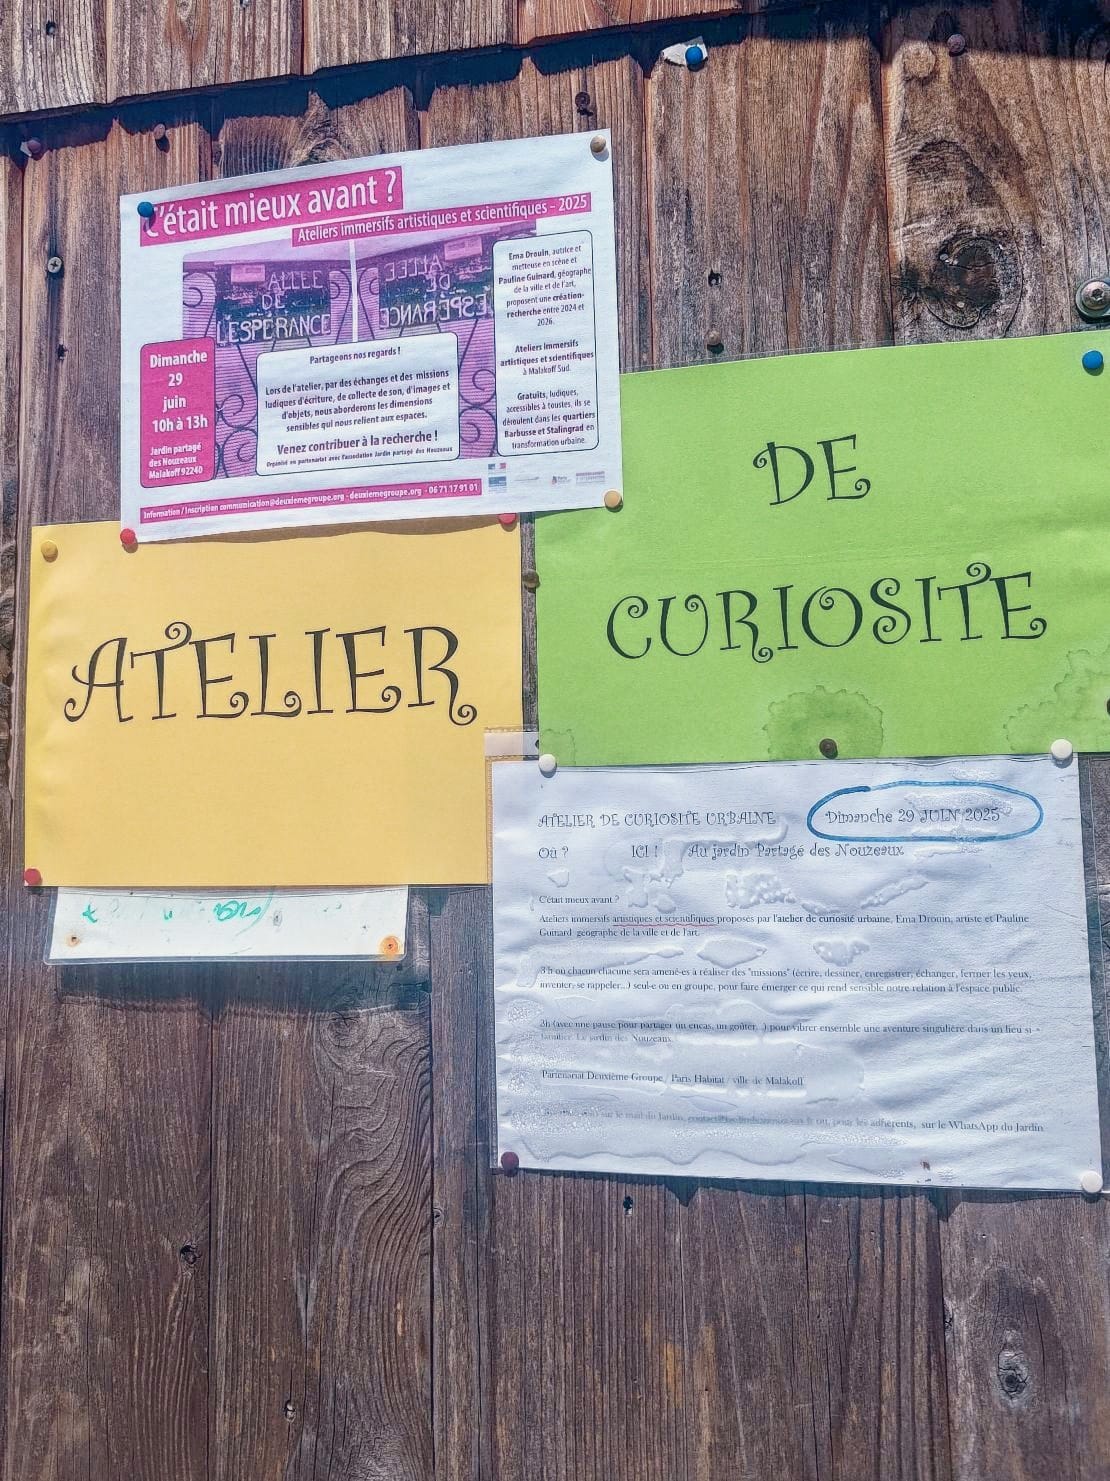 C'était mieux avant ?
Ateliers immersifs artistiques et scientifiques - 2025
ALLEE
DE
L'ESPÉRANCE
ALLEE
DE
L'ESPÉRANCE
Dimanche
29
juin
10h à 13h
Jardin partagé
des Nouzeaux
Malakoff 92240
Partageons nos regards !
Lors de l'atelier, par des échanges et des missions
ludiques d'écriture, de collecte de son, d'images et
d'objets, nous aborderons les dimensions
sensibles qui nous relient aux espaces.
Venez contribuer à la recherche !
Organisé en partenariat avec l'association Jardin partagé des Nouzeaux
Ema Drouin, autrice et
metteuse en scène et
Pauline Guinard, géographe
de la ville et de l'art,
proposent une création-
recherche entre 2024 et
2026.
Ateliers immersifs
artistiques et scientifiques
à Malakoff Sud.
Gratuits, ludiques,
accessibles à toustes, ils se
déroulent dans les quartiers
Barbusse et Stalingrad en
transformation urbaine.
Information / Inscription communication@deuxiemegroupe.org - deuxiemegroupe.org - 06 71 17 91 01
ATELIER
DE
CURIOSITE
ATELIER DE CURIOSITE URBAINE Dimanche 29 JUIN 2025
Où ? ICI ! Au jardin Partagé des Nouzeaux
C'était mieux avant ?
Ateliers immersifs artistiques et scientifiques proposés par l'atelier de curiosité urbaine, Ema Drouin, artiste et Pauline
Guinard géographe de la ville et de l'art.
3 h où chacun chacune sera amené-es à réaliser des "missions" (écrire, dessiner, enregistrer, échanger, fermer les yeux,
inventer, se rappeler...) seul-e ou en groupe, pour faire émerger ce qui rend sensible notre relation à l'espace public.
3h (avec une pause pour partager un encas, un goûter...) pour vibrer ensemble une aventure singulière dans un lieu si
familier. Le jardin des Nouzeaux.
Partenariat Deuxième Groupe / Paris Habitat / ville de Malakoff
sur le mail du Jardin, ou, pour les adhérents, sur le WhatsApp du Jardin